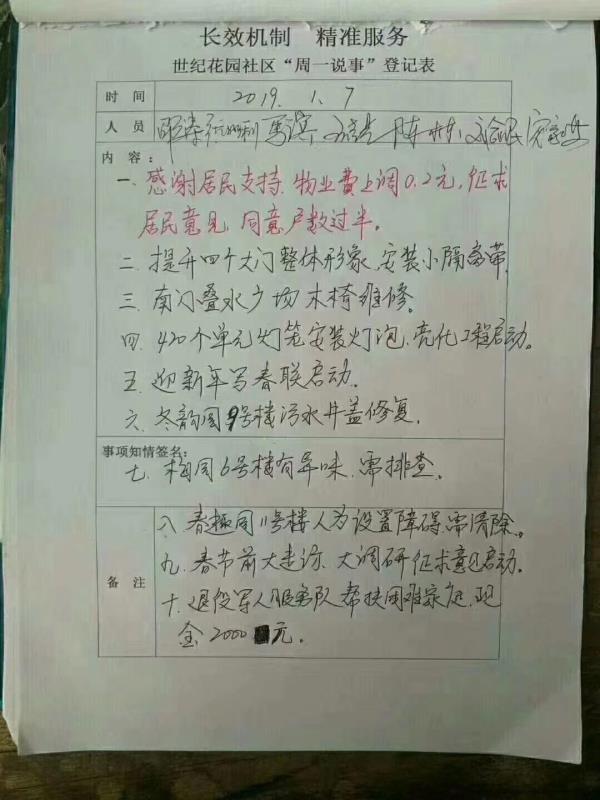 长效机制 精准服务
世纪花园社区“周一说事”登记表
时 间 2019. 1. 7
人 员
内 容：
一. 感谢居民支持. 物业费上调0.2元, 征求
居民意见, 同意户数过半。
二. 提升四个大门整体形象. 安装小隔离带.
三. 南门叠水广场木椅维修。
四. 420个单元灯笼安装灯泡. 亮化工程启动。
五. 迎新年写春联启动.
六. 冬韵园9号楼污水井盖修复.
事项知情签名：
七. 梅园6号楼有异味. 需排查.
备 注
八. 春趣园11号楼人为设置障碍需清除。
九. 春节前大走访. 大调研征求意见启动。
十. 退役军人服务队帮扶困难家庭. 现
金2000元.